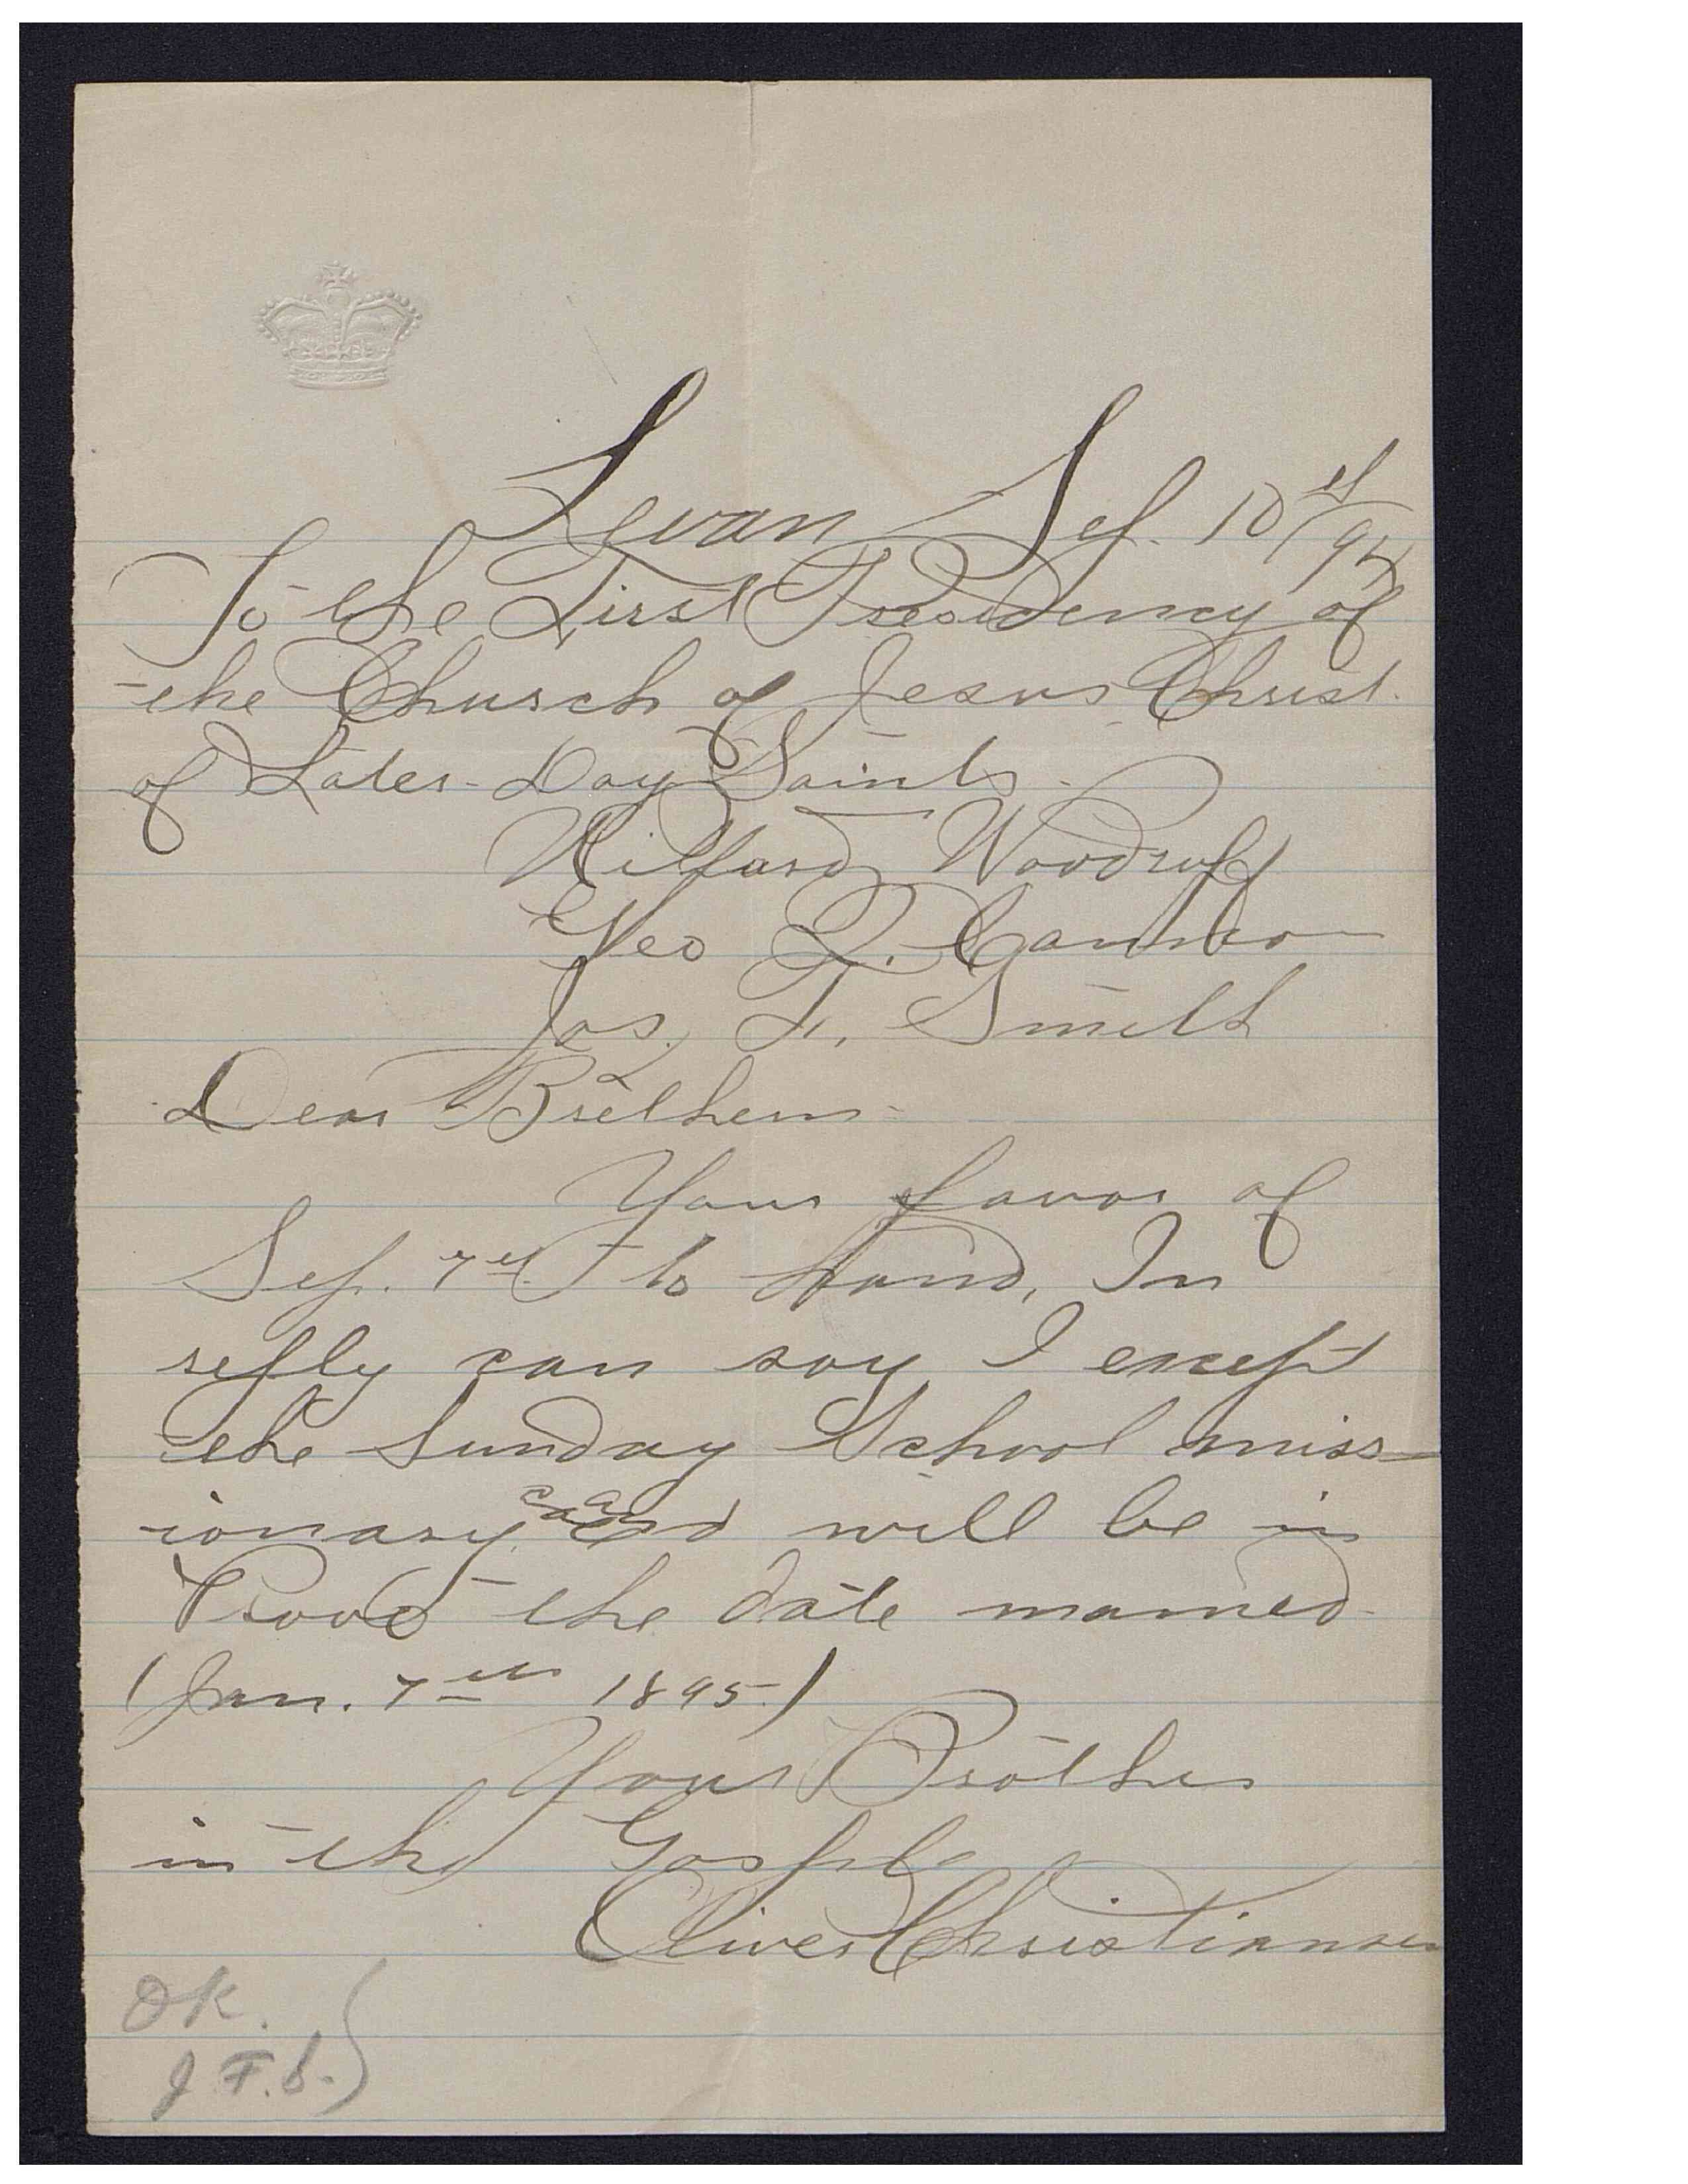 Levan Sep. 10th/94
To the First Presidency of
the Church of Jesus Christ.
of Later-Day Saints.
Wilford Woodruff
Geo Q. Cannon
Jos. F. Smith
Dear Brethern
Your favor of
Sep. 7th to hand, In
reply can say I except
the Sunday School miss-
ionary, and will be in
Provo the date named
(Jan. 7th 1895.)
Your Brother
in the Gosple
Oliver Christiansen
OK.
J F. S.